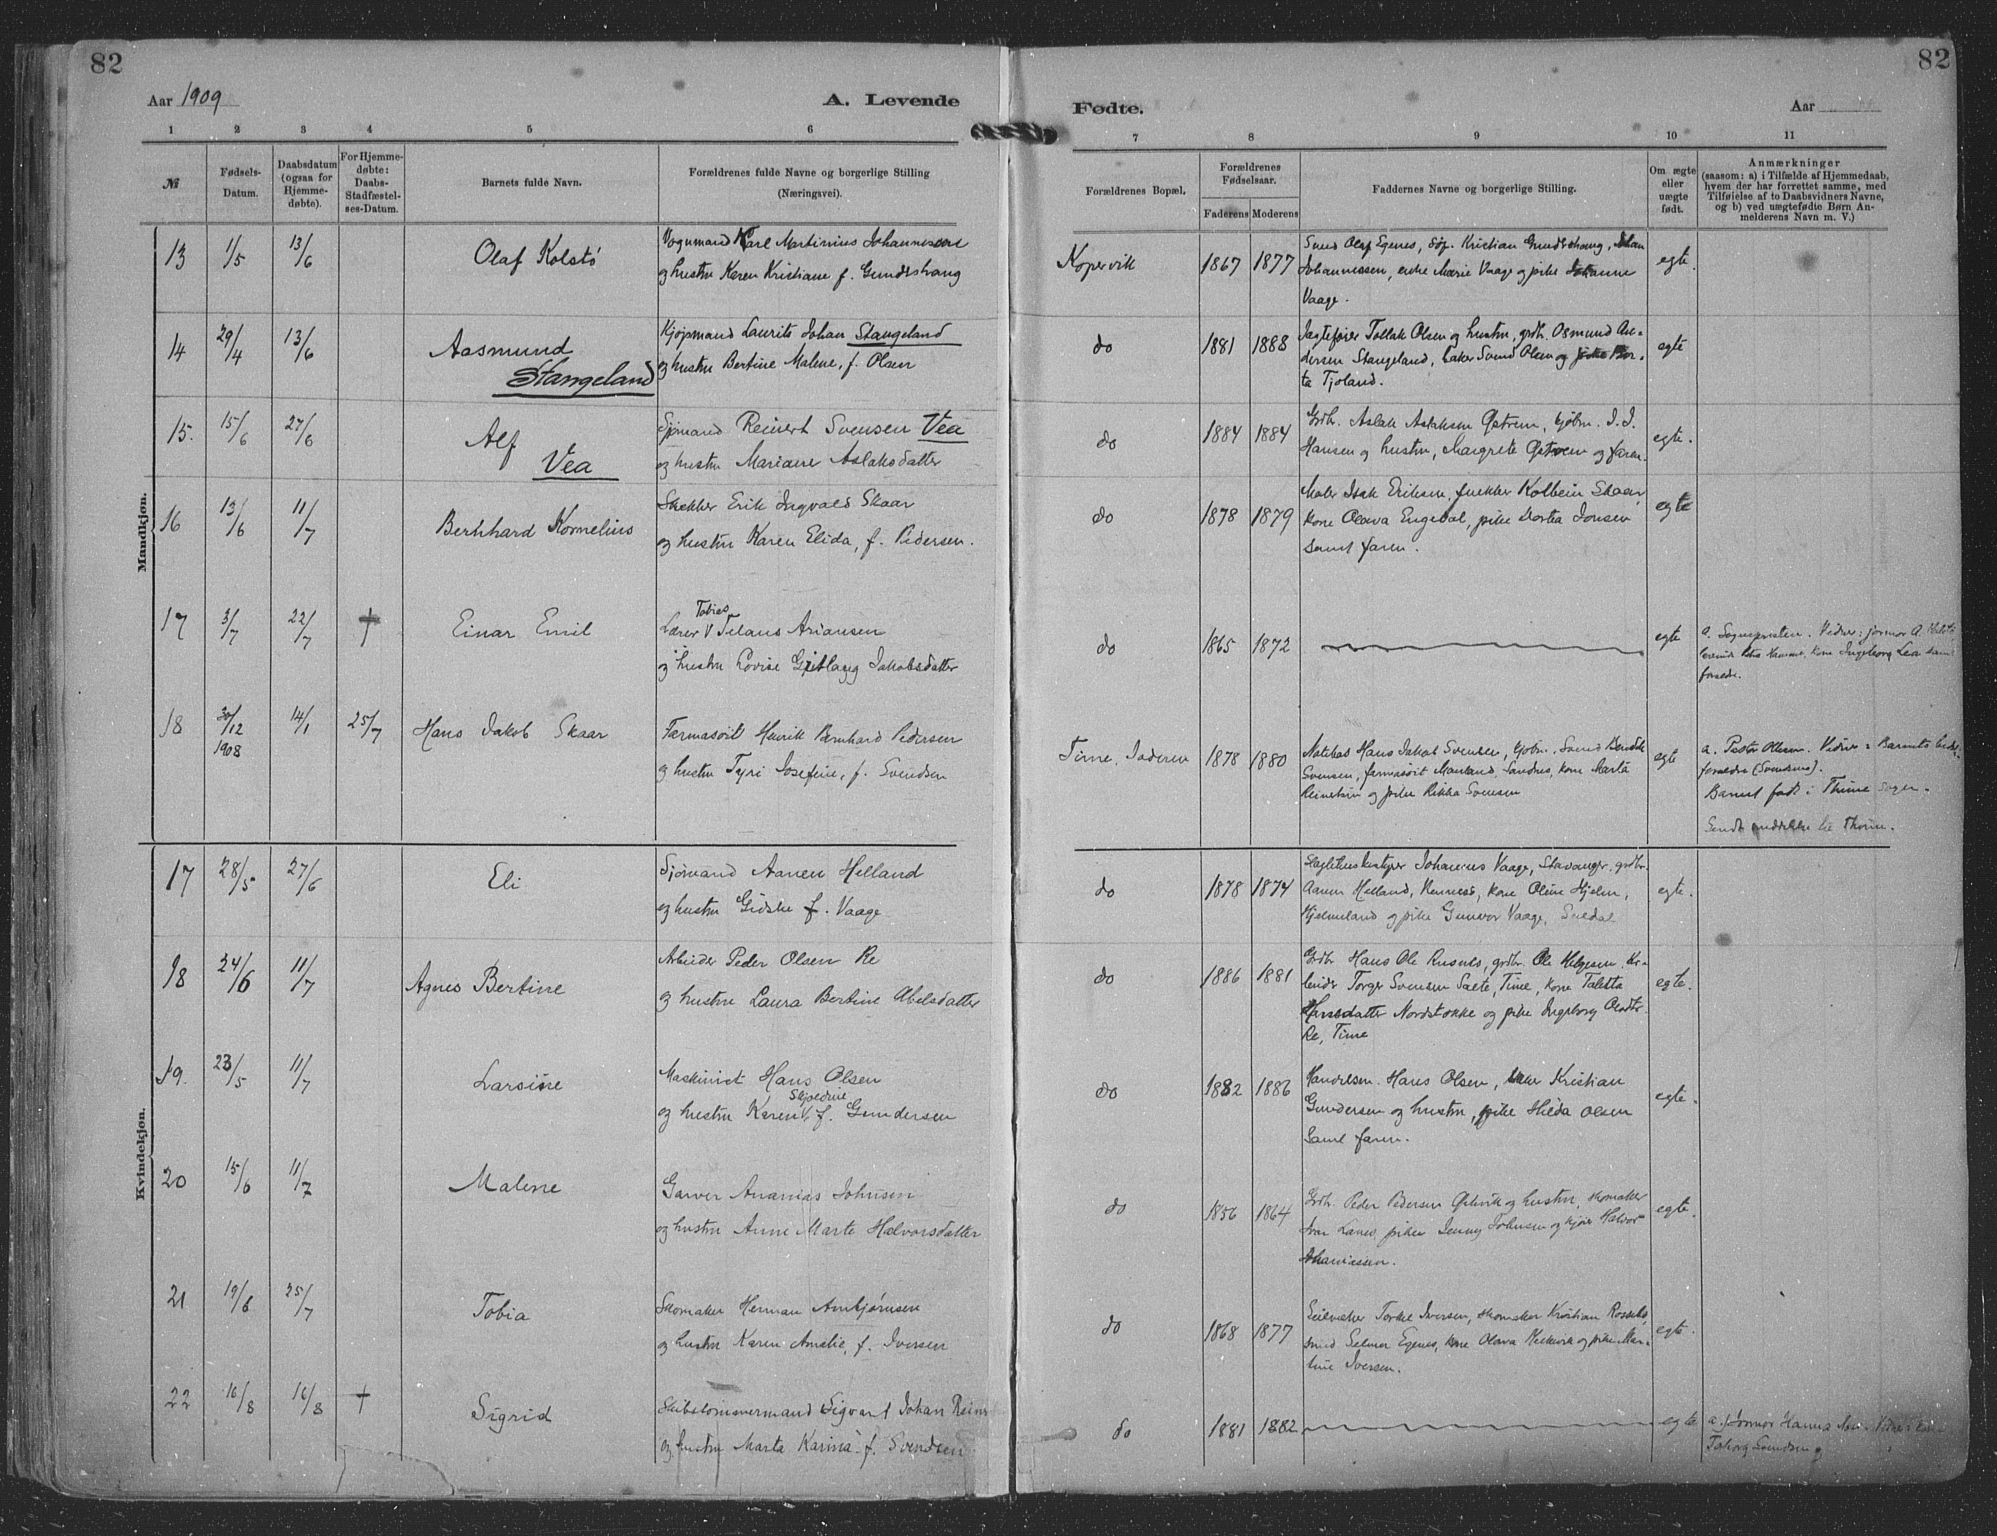 82
Aar 1909
A. Levende
1 2 3 4 5 6
№
Fødsels-
Datum.
Daabsdatum
(ogsaa for
Hjemme-
døbte).
For Hjemme-
døbte:
Daabs-
Stadfæstel-
ses-Datum.
Barnets fulde Navn.
Forældrenes fulde Navne og borgerlige Stilling
(Næringsvei).
Mandkjøn.
13 1/5 13/6 Olaf Kolstø
Vognmand Karl Martinius Johannessen
og hustru Karen Kristiane f. Gundershaug
14 29/4 13/6 Aasmund
Stangeland
Kjøpmand Laurits Johan Stangeland
og hustru Bertine Malene, f. Olsen
15. 15/6 27/6 Alf
Vea
Sjømand Reinert Svensen Vea
og hustru Mariane Aslaksdatter
16 13/6 11/7 Bernhard Kornelius
Erik Ingvald Skaar
og hustru Karen Elida, f. Pedersen.
17 3/7 22/7 † Einar Emil
Tobias
Lærer V Ariansen
og hustru Lovise Jakobsdatter
18 30/12 14/1 25/7 Hans Jakob Skaar
1908
Farmasøit Henrik Bernhard Pedersen
og hustru Tyri Josefine, f. Svendsen
Kvindekjøn.
17 28/5 27/6 Eli
Sjømand Aanen Helland
og hustru Gidske f. Vaage
18 24/6 11/7 Agnes Bertine
Arbeider Peder Olsen Re
og hustru Laura Bertine Abelsdatter
19. 23/5 11/7 Larsine
Maskinist Hans Olsen
og hustru Karen V f. Gundersen
20 15/6 11/7 Malene
Garver Ananias Johnsen
og hustru Anne Marte Halvorsdatter
21 19/6 25/7 Tobia
Skomaker Herman Arnbjørnsen
og hustru Karen Amalie, f. Iversen
22 16/8 16/8 † Sigrid
Skibstømmermand Sigvart Johan
og hustru Marta Karina f. Svendsen
82
Fødte.
Aar
7 8 9 10 11
Forældrenes Bopæl.
Forældrenes
Fødselsaar.
Faderens Moderens
Faddernes Navne og borgerlige Stilling.
Om ægte
eller
uægte
født.
Anmærkninger
(saasom: a) i Tilfælde af Hjemmedaab,
hvem der har forrettet samme, med
Tilføielse af to Daabsvidners Navne,
og b) ved uægtefødte Børn An-
melderens Navn m. V.)
Kopervik 1867 1877
Smed Olaf Egenes, Kristian Gundershaug, Johan
Johannessen, enke Marie Vaage og pike Johanne
Vaage.
egte.
do 1881 1888
Jagtefører Tollak Olsen og hustru, grdbr. Osmund As-
dersen Stangeland, Svend Olsen og pike Ber-
ta Tjoland.
egte
do 1884 1884
Grdbr. Aslak Aslaksen Østrem, kjøbm. I. I.
Hansen og hustru, Margrete Østrem og faren.
egte.
do 1878 1879
Maler Isak Eriksen, Kolbein Skaar,
kone Olava Engedal, pike Dortea Jonsen
samt faren.
egte
do 1865 1872
egte
a. Sognepresten. Vidner: jormor A.
kone Ingeborg Lea samt
forældre.
Time, Jæderen 1878 1880
Hans Jakob Svensen, kjøbm. Svend
Svensen, farmasøit Mauland, Sandnes, kone Marta
og pike Rikka Svensen
egte
a. Pastor Olsen. Vidner: Barnets
forældre (Svendsens).
Barnet født i Thime sogn.
Sendt meddelelse til Thime.
do 1878 1874
Johannes Vaage, Stavanger, grdbr.
Aanen Helland, kone Oline Hjelm,
Hjelmeland og pike Gunvor Vaage, Suldal
egte.
do 1886 1881
Grdbr Hans Ole Rusnes, grdbr. Ole Helgesen, Ar-
beider Torger Svensen Saete, Time, kone Taletta
Hansdatter Nordstokke og pike Ingeborg
Re, Time
egte.
do 1882 1886
Handelsm. Hans Olsen, Kristian
Gundersen og hustru, pike Hilda Olsen
samt faren.
egte.
do 1856 1864
Grdbr. Peder Pedersen Østvik og hustru, skomaker
Ivar Lanes, pike Jenny Johnsen og Halvor
Johannessen.
egte.
do 1868 1877
Seilmaker Torkel Iversen, skomaker Kristian
smed Selmer Egenes, kone Olava og pike Mar-
tine Iversen.
egte.
do 1881 1882
egte
a. Jormor Hanna
Svendsen